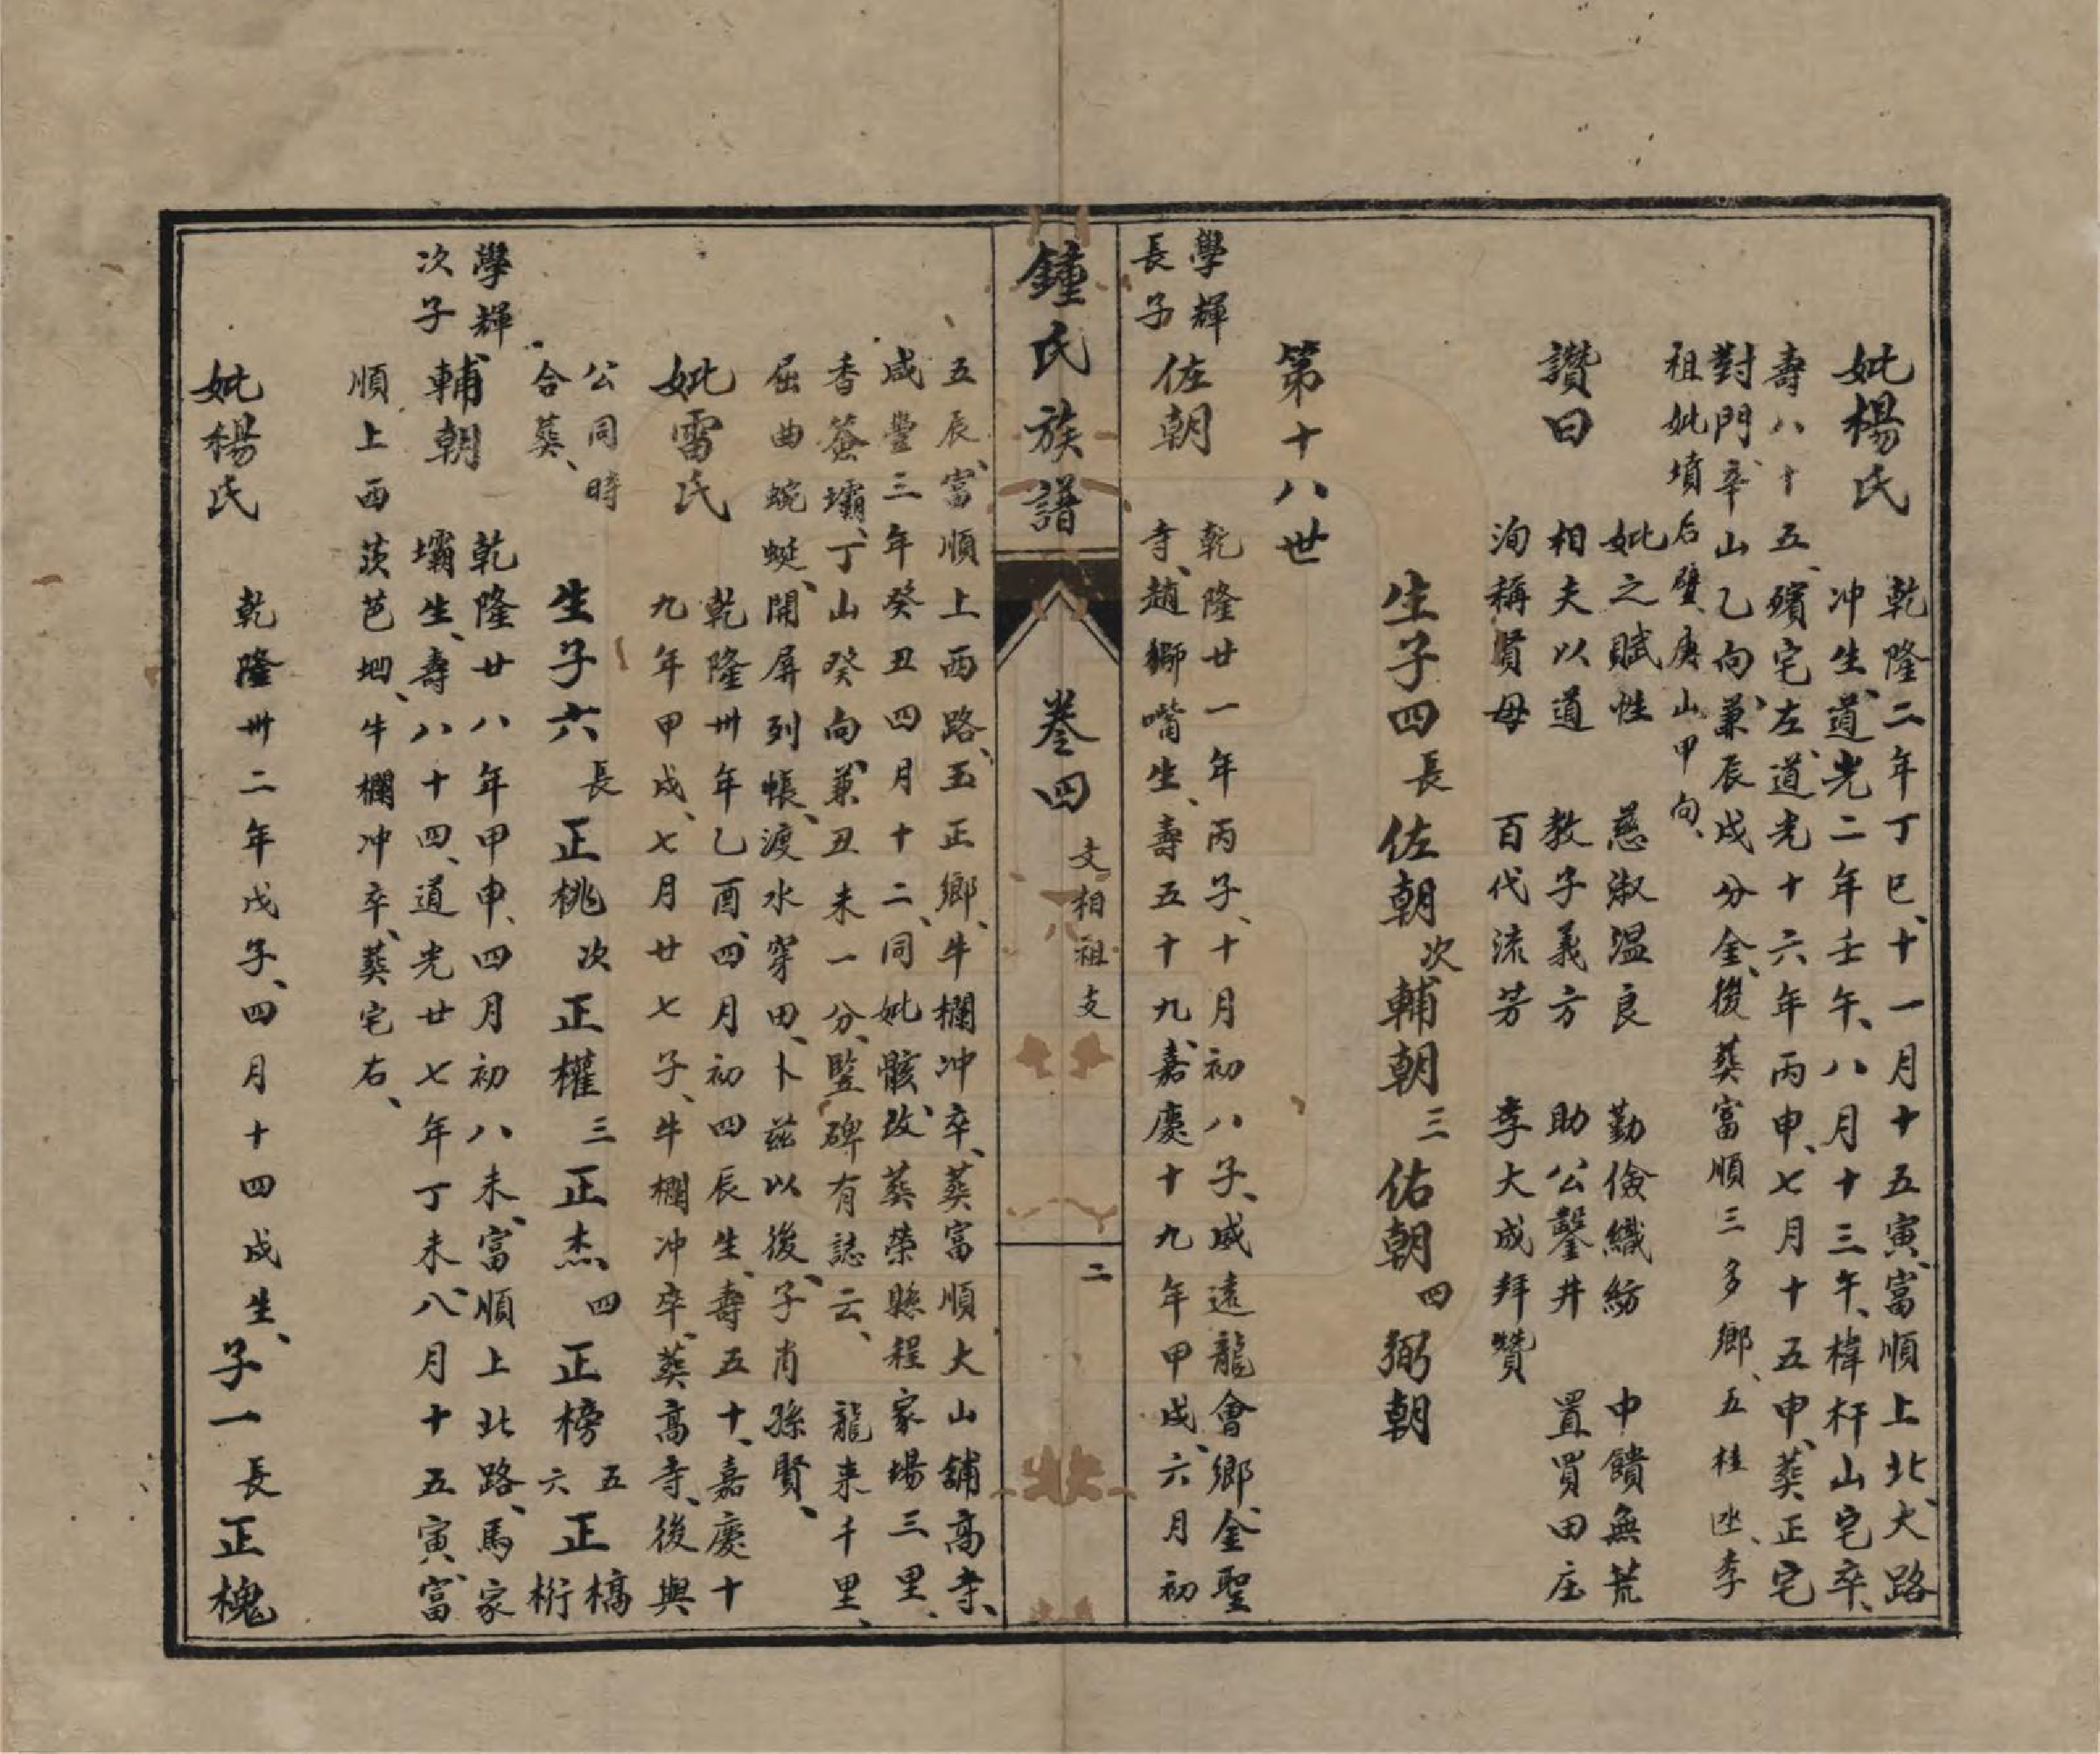 妣楊氏
乾隆二年丁巳、十一月十五寅、富順上北、大路
冲生、道光二年壬午、八月十三午、樟杆山宅卒、
壽八十五、殯宅左、道光十六年丙申、七月十五申、葬正宅
對門辛山乙向、兼辰戌分金、後葬富順三多鄉、五桂坵、李
祖妣墳后壁、庚山甲向、
讚曰
妣之賦性　慈淑温良　勤儉織紡　中饋無荒
相夫以道　教子義方　助公鑿井　置買田庄
洵稱賢母　百代流芳　李大成拜贊
生子四長佐朝次輔朝三佑朝四弼朝
第十八世
學輝長子佐朝
乾隆廿一年丙子、十月初八子、威遠龍會鄉、金聖
寺、趙獅嘴生、壽五十九、嘉慶十九年甲戌、六月初
鍾氏族譜
卷四
文相祖支
二
五辰、富順上西路、玉正鄉、牛欄冲卒、葬富順大山鋪高寺、
咸豐三年癸丑四月十二、同妣骸、改葬榮縣程家場三里、
香簽壩、丁山癸向、兼丑未一分、監碑有誌云、龍来千里、
屈曲蜿蜒、開屏列帳、渡水穿田、卜茲以後、子肖孫賢、
妣雷氏
乾隆卅年乙酉、四月初四辰生、壽五十、嘉慶十
九年甲戌、七月廿七子、牛欄冲卒、葬高寺、後與
公同時
合葬、
生子六長正桃次正權三正杰四正榜五六正槁桁
學輝次子輔朝
乾隆廿八年甲申、四月初八未、富順上北路、馬家
壩生、壽八十四、道光廿七年丁未、八月十五寅、富
順上西茨芭坳、牛欄冲卒、葬宅右、
妣楊氏
乾隆卅二年戊子、四月十四戌生、子一長正槐